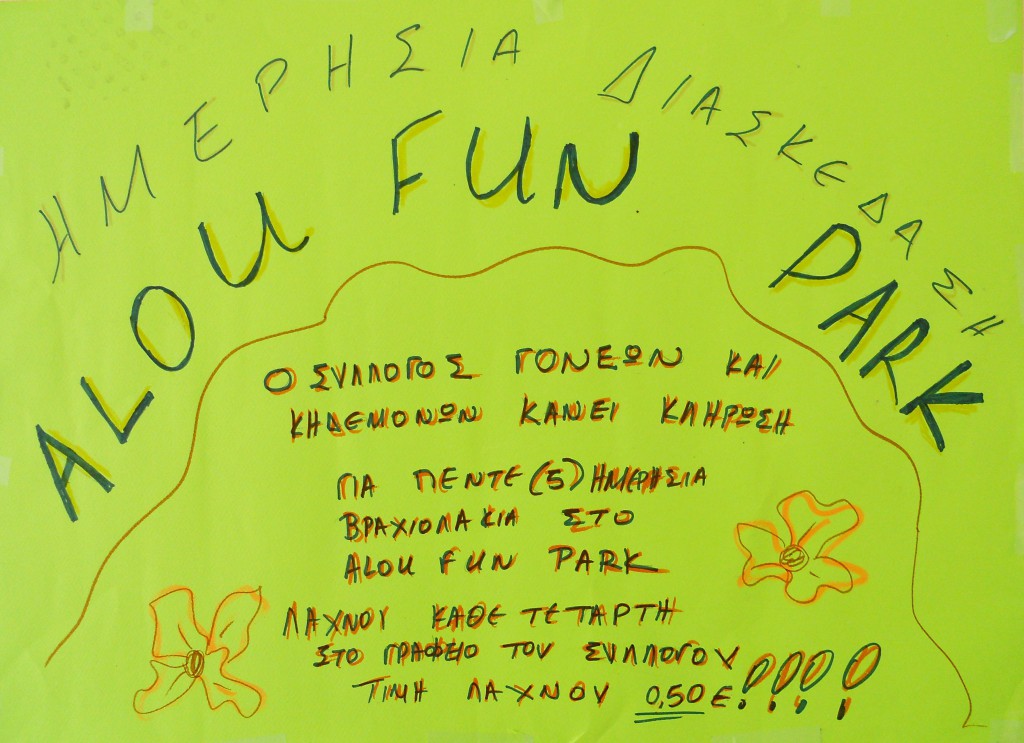 ΗΜΕΡΗΣΙΑ ΔΙΑΣΚΕΔΑΣΗ
ALOU FUN PARK
Ο ΣΥΛΛΟΓΟΣ ΓΟΝΕΩΝ ΚΑΙ
ΚΗΔΕΜΟΝΩΝ ΚΑΝΕΙ ΚΛΗΡΩΣΗ
ΓΙΑ ΠΕΝΤΕ (5) ΗΜΕΡΗΣΙΑ
ΒΡΑΧΙΟΛΑΚΙΑ ΣΤΟ
ALOU FUN PARK
ΛΑΧΝΟΥ ΚΑΘΕ ΤΕΤΑΡΤΗ
ΣΤΟ ΓΡΑΦΕΙΟ ΤΟΥ ΣΥΛΛΟΓΟΥ
ΤΙΜΗ ΛΑΧΝΟΥ 0,50 Ε!!!!